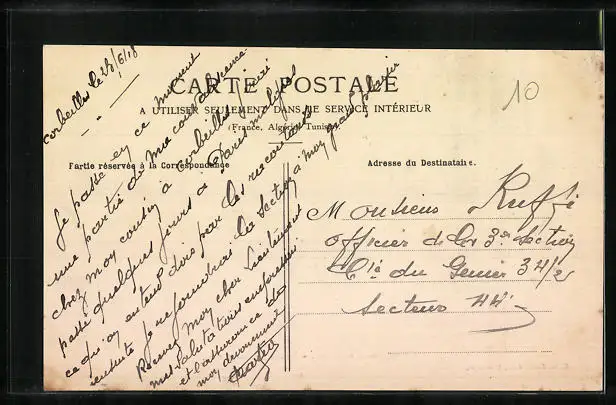 CARTE POSTALE
A UTILISER SEULEMENT DANS LE SERVICE INTÉRIEUR
(France, Algérie, Tunisie)
Partie réservée à la Correspondance
Adresse du Destinataire.
10
Corbeilles le 28/6/18
Je passe en ce moment
une partie de ma convalescence
chez mon cousin à Corbeilles j'ai
passé quelques jours à Paris malgré
ce qu'on entend dire par les
ensuite je rejoindrai la Section à mon grand plaisir
Recevez mon cher Lieutenant
mes salutations empressées
et l'assurance de
mon dévouement
Monsieur Ruffé
officier de la 3e section
Cie du Génie 34/2
Secteur 44